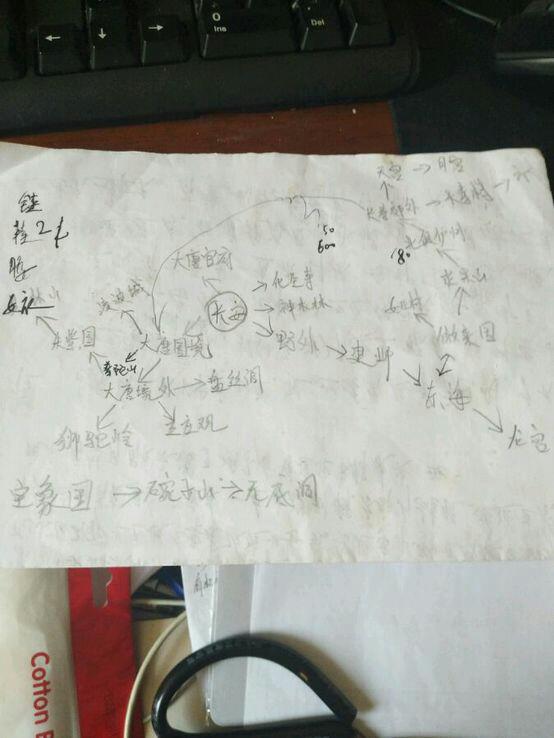 0
Ins
Del
天宫 → 月宫
鞋2
大唐官府
长寿郊外
50
600
北俱芦洲
80
化生寺
长安
神木林
女儿村
花果山
朱紫国
大唐国境
野外 → 建邺
傲来国
普陀山
大唐境外 → 盘丝洞
东海
狮驼岭
五庄观
龙宫
宝象国 → 碗子山 → 无底洞
Cotton